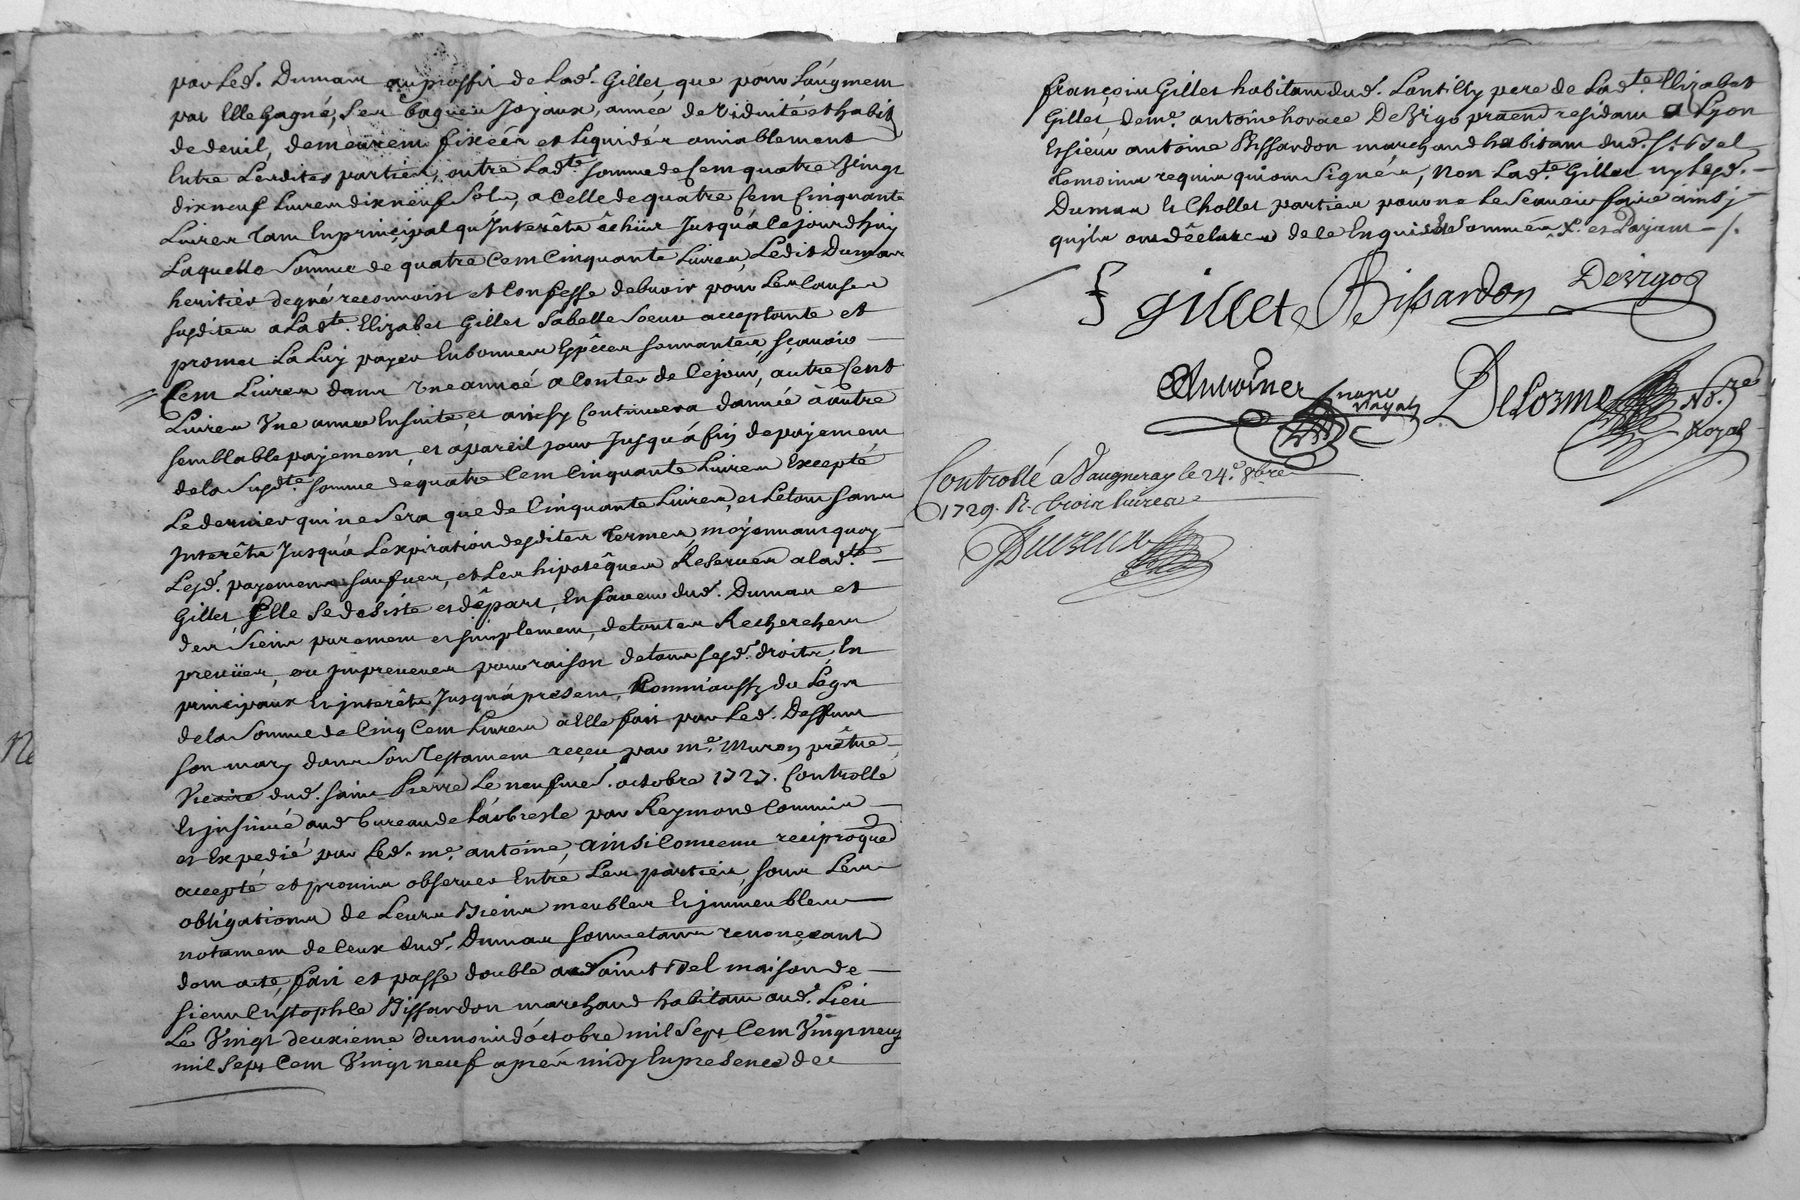 par led. Dumas au proffit de lad. Gillet, que pour l'augment
par Elle gagné, ses bagues Joyaux, année de viduité et habit
de deuil, demeurent fixées et liquidés amiablement
Entre lesdites parties, outre lad.te somme de Cent quatre Vingt
dix neuf Livres dix neuf sols, a celle de quatre Cent Cinquante
Livres tant En principal qu'Interêts échüs Jusqu'à Cejourd'huy
Laquelle Somme de quatre Cent Cinquante Livres, Ledit Dumas
heritier de gré reconnoist et Confesse debvoir pour Les Causes
susdites a lad.te Elizabet Gillet sa belle soeur acceptante et
promet La Luy payer En bonnes Espêces sonnantes sçavoir
Cent Livres dans Une année a Conter de Cejour, autre Cent
Livres Une année Ensuite, et ainsy Continuera d'année à autre
semblable payement, et a pareil jour Jusqu'à fin de payement
de la Susd.te somme de quatre Cent Cinquante Livres Excepté
Le dernier qui ne sera que de Cinquante Livres, et Le tout sans
Interêts Jusqu'à L'expiration desdites termes, moyennant quoy
Lesd. payements faits, et Les hipotêques Reservées a lad.te
Gillet, Elle se desiste et départ, En faveur dud. Dumas et
des siens purement et simplement, de toutes Recherches
preveües, ou Impreveües pour raison de tous sesd. droits, En
principaux et interêts Jusqu'à present, Comm'aussy du Legs
de la Somme de Cinq Cent Livres à Elle fait par Led. Deffunt
son mary dans son Testament reçeu par m.e Muron prêtre
Vicaire dud. saint Pierre Le neufme. octobre 1727. Controllé
Et insinué aud. bureau de L'arbresle par Reymond Commis
et Expedié par Led. m.e antoine, ainsi Convenu reciproqued
accepté et promis observer Entre Les parties, sous Leurs
obligations de Leurs Biens meubles Et immeubles
notament de Ceux dud. Dumas soumettans renonceant
dont acte, fait et passé double aud. Saint Bel maison de
sieur Cristophle Bissardon marchand habitant aud. Lieu
Le Vingt deuxième du mois d'octobre mil Sept Cent Vingt neuf
mil Sept Cent Vingt neuf après midy En presence de
françois Gillet habitant dud. Lantilly pere de Lad.te Elizabet
Gillet, de me. antoine horace Devigo residant a Lyon
Et sieur antoine Bissardon marchand habitant dud. St. Bel
temoins requis qui ont Signés, Non Lad.te Gillet ny Lesd.
Dumas Et Chollet parties pour ne Le Scavoir faire ainsi
qu'ils ont déclaré de ce Enquis et Sommés X. et Payant
f gillet A Bissardon Devigo
Antoine no.re Royal Delorme No.re
Royal
Controllé a Vaugneray le 24.e 8bre
1729. R. trois livres